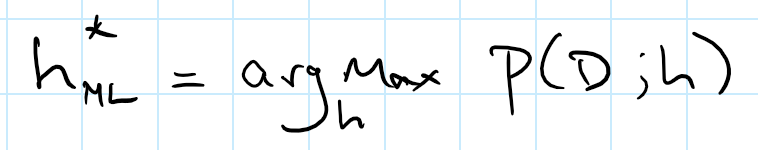 h*_ML = arg max_h P(D;h)